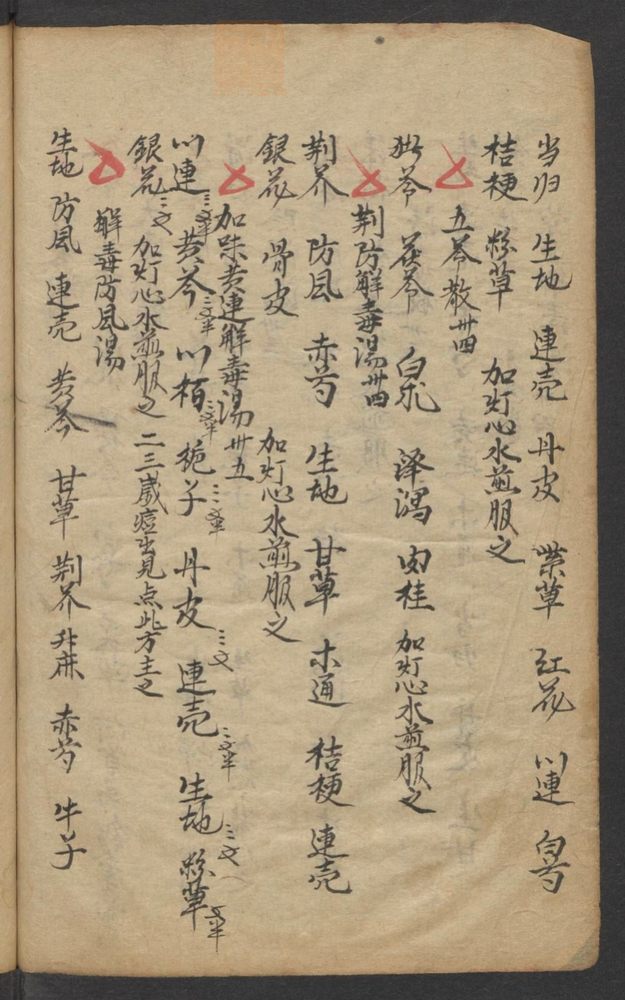 当归 生地 連壳 丹皮 紫草 红花 川連 白芍
桔梗 粉草 加灯心水煎服之
五苓散卅四
猪苓 茯苓 白朮 泽瀉 肉桂 加灯心水煎服之
荆防解毒湯卅四
荆芥 防风 赤芍 生地 甘草 木通 桔梗 連壳
銀花 骨皮 加灯心水煎服之
加味黄連解毒湯卅五
川連 黄芩 川栢 梔子 丹皮 連壳 生地 粉草
銀花 加灯心水煎服之 二三歲痘出見点此方主之
解毒防风湯
生地 防风 連壳 黄芩 甘草 荆芥 升麻 赤芍 牛子